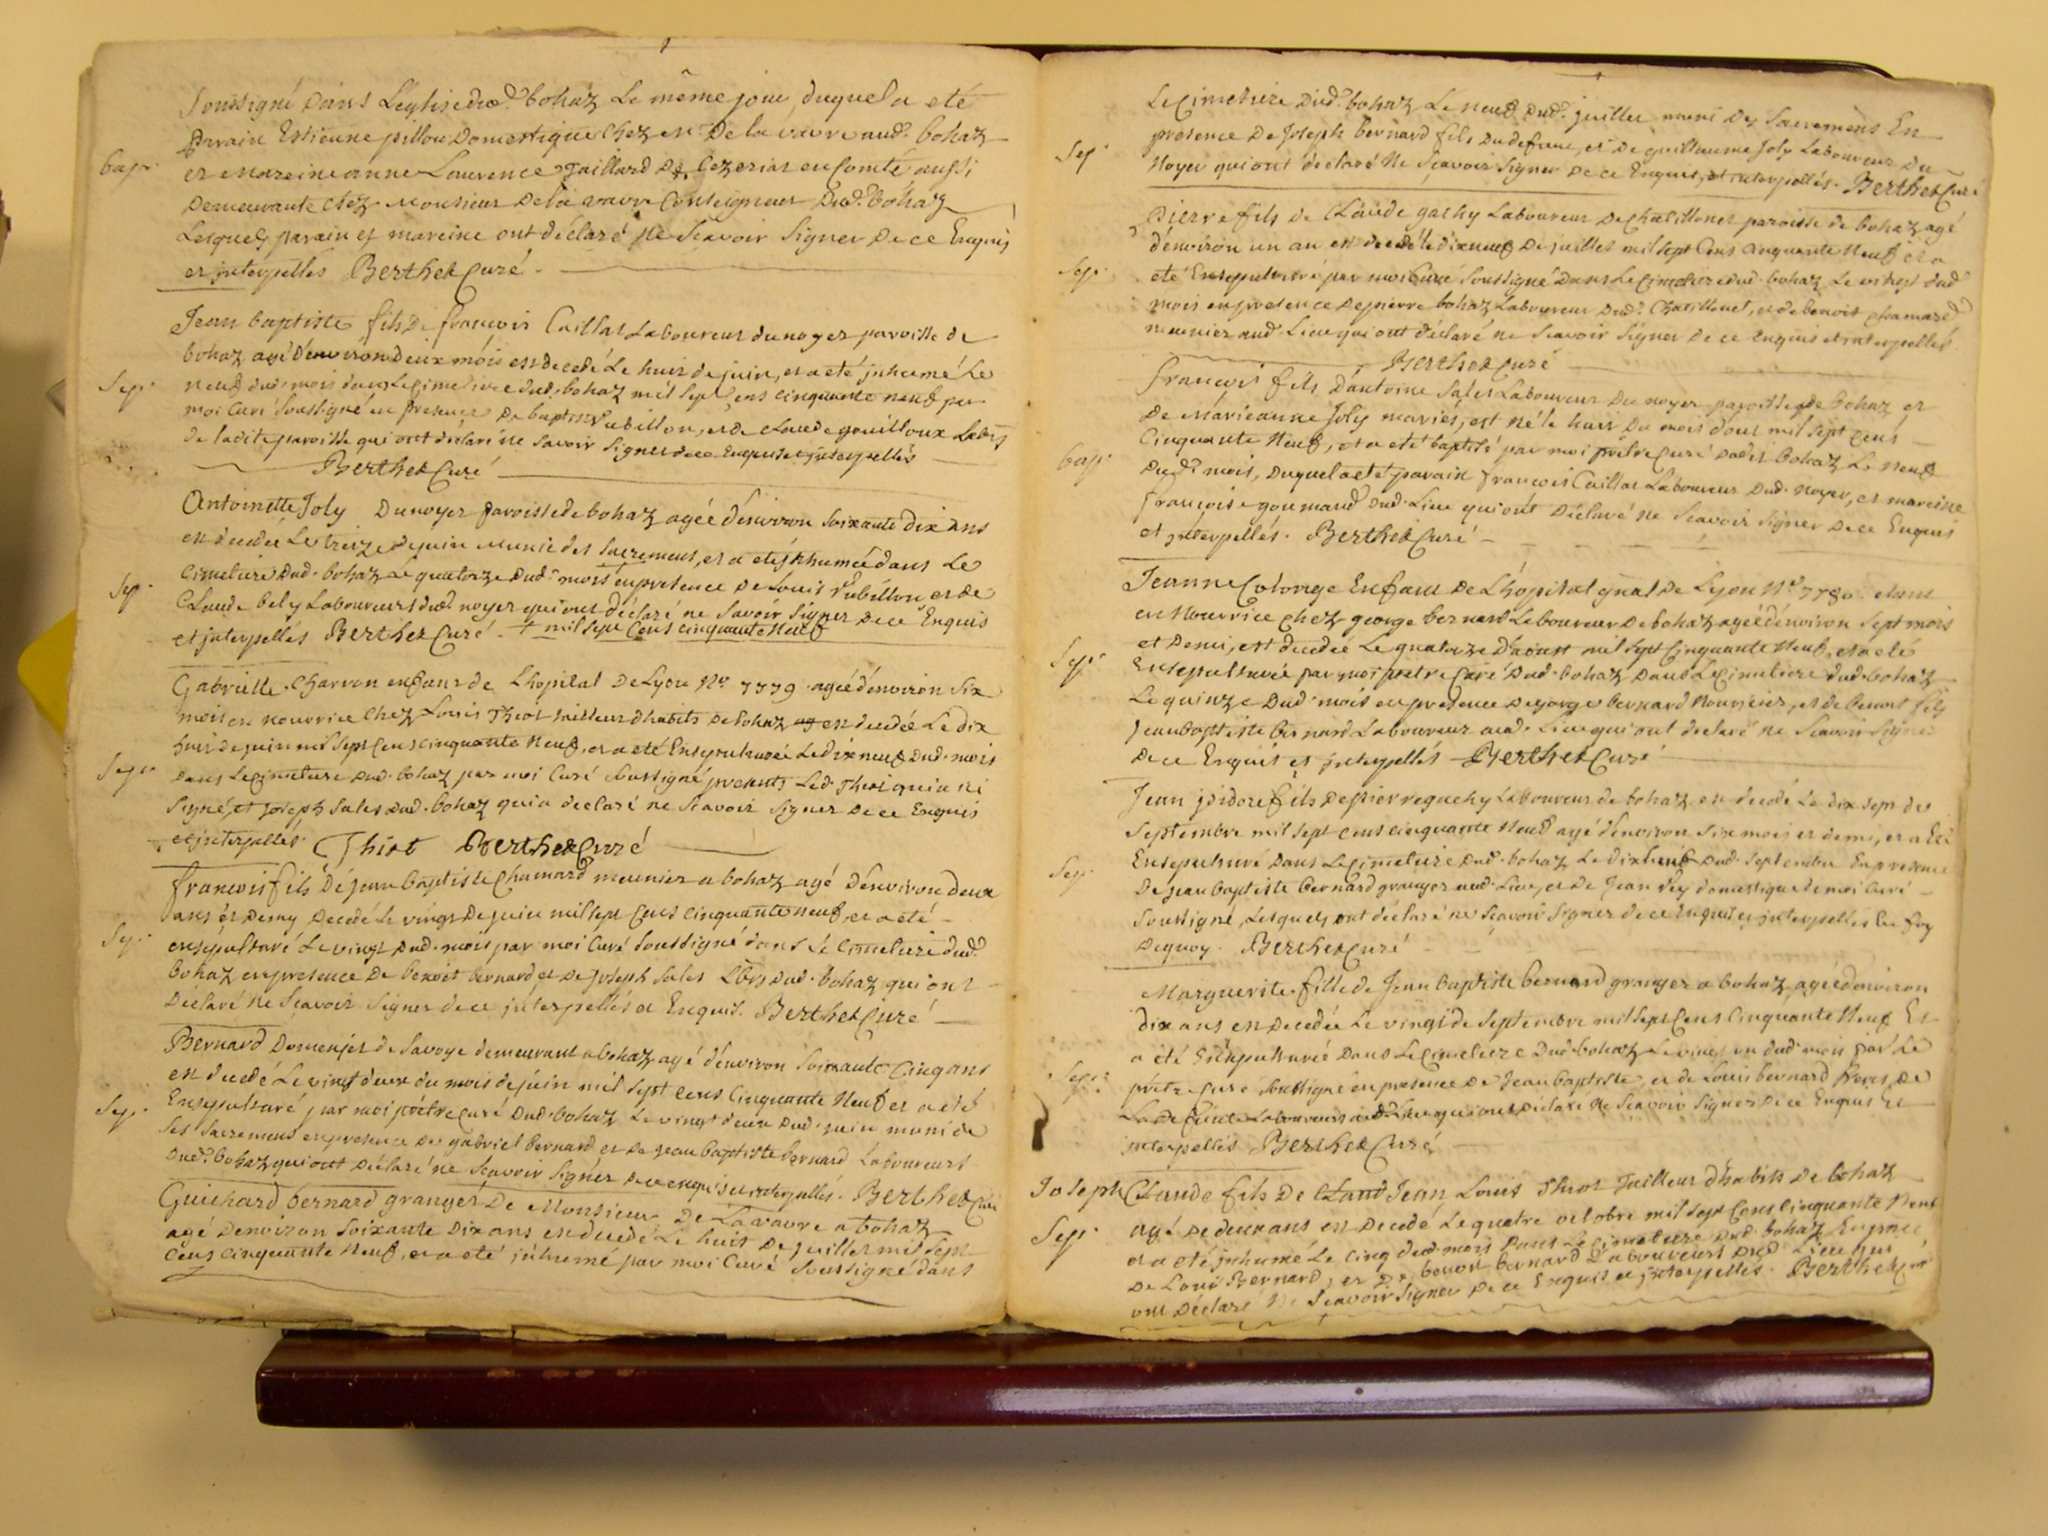 soussigné dans L'eglise dud. bohaz Le même jour, duquel a eté
parain Estienne pillou Domestique chez Mr. De la vavre aud. bohaz
bapt.
et mareine anne Laurence Jaillard De Cezeriat en Comté aussi
Demeurante chez Monsieur Dela vavre Conseigneur Dud. bohaz
Lesquels parain et mareine ont déclaré ne Scavoir Signer De ce Enquis
et interpellés Berthet Curé
Jean baptiste fils De françois Caillat Laboureur du noyer paroisse de
bohaz agé d'environ deux mois est decedé Le huit de juin, et a eté inhumé Le
Sep.
neuf dud. mois dans Le Cimetiere dud. bohaz mil sept cens cinquante neuf par
moi Curé Soussigné en presence De baptiste Rubillon, et de Claude gouilloux Labrs
de ladite paroisse qui ont déclaré ne Savoir Signer de ce Enquis et interpellés
Berthet Curé
Antoinette Joly Du noyer paroisse de bohaz agée d'environ Soixante dix ans
est decedée Le treize de juin munie des Sacremens, et a eté inhumée dans Le
Sep.
Cimetiere Dud. bohaz Le quatorze Dud. mois en presence De Louis Rubillon et de
Claude bely Laboureurs dud. noyer qui ont déclaré ne Savoir Signer De ce Enquis
et interpellés Berthet Curé. + mil sept Cens cinquante Neuf
Gabrielle Charvon enfant de L'hopital De Lyon No. 7779 agée d'environ Six
mois en nourrice chez Louis Thiot tailleur d'habits De bohaz est decedée Le dix
huit de juin mil Sept Cens cinquante Neuf, et a eté Ensepulturée Le dix neuf Dud. mois
Sep.
dans Le Cimetiere Dud. bohaz par moi Curé Soussigné presents Led. Thiot qui a ici
Signé, et Joseph Sales Dud. bohaz qui a déclaré ne Scavoir Signer De ce Enquis
et interpellés. Thiot Berthet Curé
francois fils De jean baptiste Chamard meunier a bohaz agé D'environ deux
ans et Demy Decedé Le vingt De juin mil sept Cens cinquante neuf, et a eté
Sep.
ensepulturé Le vingt Dud. mois par moi Curé Soussigné dans Le Cimetiere dud.
bohaz en presence De benoit bernard et De Joseph Sales Lbrs Dud. bohaz qui ont
Déclaré Ne Scavoir Signer de ce interpellés et Enquis. Berthet Curé
Bernard Domenjet de Savoye demeurant a bohaz agé d'environ Soixante Cinq ans
est decedé Le vingt deux du mois de juin mil sept Cens Cinquante Neuf et a eté
Sep.
Ensepulturé par moi prêtre Curé Dud. bohaz Le vingt deux Dud. juin muni de
Ses Sacremens en presence De gabriel bernard et De jean baptiste bernard Laboureurs
Dud. bohaz qui ont Déclaré ne Scavoir Signer De ce enquis et interpellés. Berthet Curé
Guichard bernard granger De Monsieur De Lavavre a bohaz
agé D'environ Soixante Dix ans est decedé Le huit De juillet mil Sept
Cens cinquante Neuf, et a eté inhumé par moi Curé Soussigné dans
Le Cimetiere Dud. bohaz Le neuf Dud. juillet muni des Sacremens En
Sep.
presence De Joseph bernard fils Du defunt, et De guillaume Joly Laboureur Du
Noyer qui ont declaré Ne Scavoir Signer De ce Enquis, et interpellés. Berthet Curé
Pierre fils de Claude gachy Laboureur De chatillonet paroisse de bohaz agé
d'environ un an est decedé le dix neuf De juillet mil sept Cens cinquante Neuf et a
Sep.
eté Ensepulturé par moi Curé Soussigné Dans Le Cimetiere dud. bohaz Le vingt dud.
mois en presence De pierre bohaz Laboureur Dud. Chatillonet, et de benoit Chamard
meunier aud. Lieu qui ont déclaré ne Scavoir Signer De ce Enquis et interpellés.
Berthet Curé
François fils D'antoine Sales Laboureur Du noyer paroisse de bohaz et
De Marieanne Joly mariés, est Né le huit Du mois d'out mil sept Cens
bap.
Cinquante Neuf, et a eté baptisé par moi prêtre Curé Dudit bohaz Le Neuf
Dud. mois, Duquel a eté parain françois Caillat Laboureur Dud. Noyer, et mareine
Françoise goumand Dud. Lieu qui ont Déclaré ne Scavoir Signer De ce Enquis
et interpellés. Berthet Curé
Jeanne Colonge Enfant De L'hopital gnal De Lyon No. 7780 etant
en Nourrice chez george bernard Laboureur De bohaz agée d'environ Sept mois
et Demi, est decedée Le quatorze D'aoust mil sept Cinquante Neuf, et a eté
Sep.
Ensepulturée par moi prêtre Curé Dud. bohaz Dans Le Cimetiere dud. bohaz
Le quinze Dud. mois en presence De george bernard Nourricier, et de benoit fils
Jean baptiste bernard Laboureur aud. Lieu qui ont declaré ne Scavoir Signer
De ce Enquis et interpellés Berthet Curé
Jean isidore fils De pierre guichy Laboureur de bohaz est decedé Le dix sept de
Septembre mil sept Cens cinquante Neuf agé d'environ Six mois et demi, et a Eté
Sep.
Ensepulturé Dans Le Cimetiere Dud. bohaz Le dixhuit Dud. Septembre En presence
De jean baptiste bernard granger aud. Lieu, et De Jean Rey domestique de moi Curé
Soussigné, Lesquels ont déclaré ne Scavoir Signer de ce Enquis et interpellés En foy
Dequoy. Berthet Curé
Marguerite fille de Jean baptiste bernard granger a bohaz, agée d'environ
dix ans est decedée Le vingt de Septembre mil sept Cens Cinquante Neuf Et
a été Ensepulturée Dans Le Cimetiere Dud. bohaz Le vingt un dud. mois par Le
Sep.
prêtre Curé Soussigné en presence De Jean baptiste, et de Louis bernard freres De
La de funte Laboureurs aud. Lieu qui ont Déclaré Ne Scavoir Signer De ce Enquis Et
interpellés Berthet Curé
Joseph Claude fils De Jean Louis Thiot Tailleur D'habits De bohaz
Sep.
agé De deux ans est Decedé Le quatre octobre mil sept Cens Cinquante Neuf
et a eté inhumé Le cinq dud. mois dans Le Cimetiere Dud. bohaz En prece
De Louis Bernard, et De benoit bernard Laboureurs Dud. Lieu qui
ont Déclaré Ne Scavoir Signer De ce Enquis et interpellés. Berthet Curé